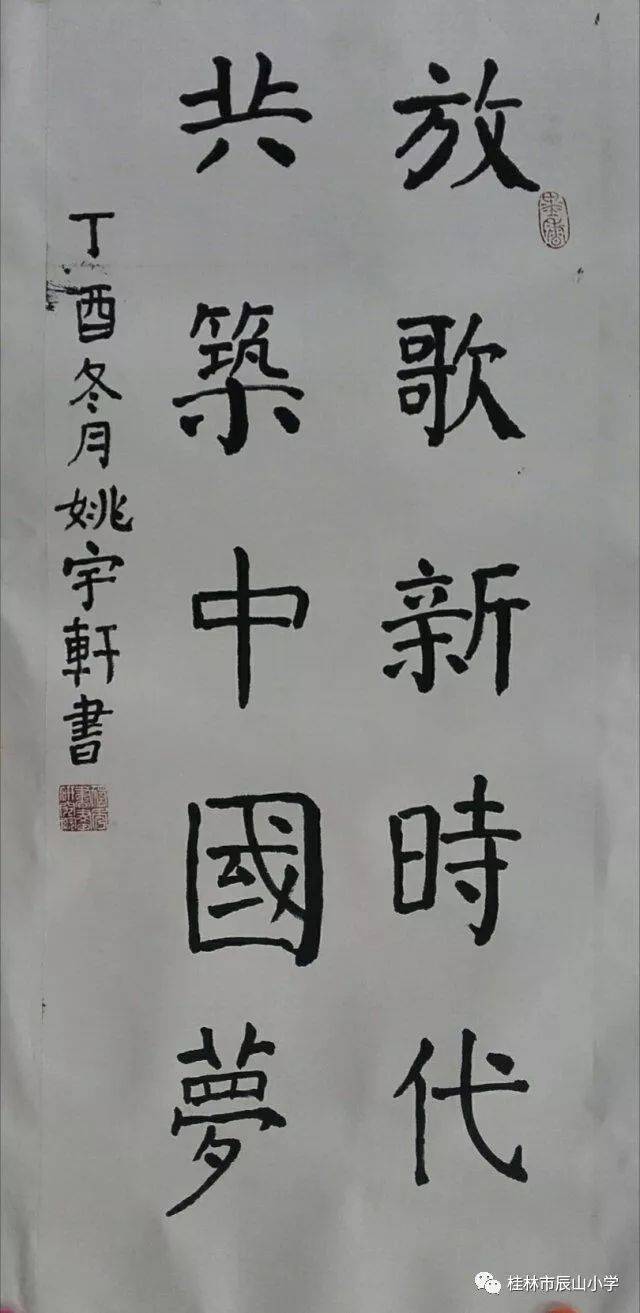 放歌新時代
共築中國夢
丁酉冬月姚宇軒書
桂林市辰山小学